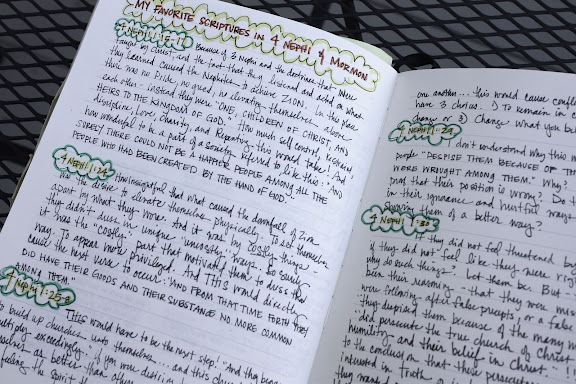 MY FAVORITE SCRIPTURES IN 4 NEPHI & MORMON
Because of 3 Nephi and the doctrines that were
taught by Christ, and the fact that they listened and acted on what
they learned caused the Nephites to achieve ZION. In this place
there was no Pride, no greed, no elevating themselves above
each other - instead they were "ONE, CHILDREN OF CHRIST, AND
HEIRS TO THE KINGDOM OF GOD." How much self control, kindness,
discipline, Love, Charity, and Repenting this would take! And
how wonderful to be a part of a society referred to like this: "AND
SURELY THERE COULD NOT BE A HAPPIER PEOPLE AMONG ALL THE
PEOPLE WHO HAD BEEN CREATED BY THE HAND OF GOD."
4 NEPHI 1:24
It is so insightful that what caused the downfall of Zion
was the desire to elevate themselves physically. To set themselves
apart by what they wore. And it was by "costly things" -
they didn't dress in unique, "unworldly" ways. So surely
it was the "costly" part that motivated them to dress that
way. To appear more privileged. And THIS would directly
cause the next verse to occur: "AND FROM THAT TIME FORTH THEY
DID HAVE THEIR GOODS AND THEIR SUBSTANCE NO MORE COMMON
AMONG THEM."
4 Nephi 1:25-2
This would have to be the next step! "And they began
to build up churches unto themselves... and this
multiply exceedingly." if you were desiring
yourselves as better than others
feeling the spirit
one another... this would cause
have 3 choices. 1) To remain in
change or 3) Change what you be
4 NEPHI 1:29
I don't understand why this
people "DESPISE THEM BECAUSE OF TH
WORK WROUGHT AMONG THEM." Why?
proof that their position is wrong? Do
in their ignorance and hurtful ways
showing them of a better way?
4 NEPHI 1:30
If they did not feel threatened by
if they did not feel like they were right
why do such things? Let them be. But
been their reasoning - that they were mis
were following after false precepts, or a false
"they despised them because of the many
did persecute the true church of Christ
humility and their belief in Christ...!!
to the conclusion that these
interested in Truth
they wanted